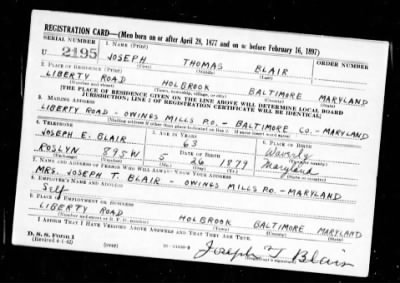 REGISTRATION CARD—(Men born on or after April 28, 1877 and on or before February 16, 1897)
SERIAL NUMBER
1. NAME (Print)
ORDER NUMBER
U 2195
JOSEPH THOMAS BLAIR
(First) (Middle) (Last)
2. PLACE OF RESIDENCE (Print)
LIBERTY ROAD HOLBROOK BALTIMORE MARYLAND
(Number and street) (Town, township, village, or city) (County) (State)
[THE PLACE OF RESIDENCE GIVEN ON THE LINE ABOVE WILL DETERMINE LOCAL BOARD
JURISDICTION; LINE 2 OF REGISTRATION CERTIFICATE WILL BE IDENTICAL]
3. MAILING ADDRESS
LIBERTY ROAD - OWINGS MILLS P.O. - BALTIMORE CO. - MARYLAND
4. TELEPHONE
5. AGE IN YEARS
6. PLACE OF BIRTH
JOSEPH E. BLAIR
63
Waverly
DATE OF BIRTH
ROSLYN 895W
5 26 1879
Maryland
7. NAME AND ADDRESS OF PERSON WHO WILL ALWAYS KNOW YOUR ADDRESS
MRS. JOSEPH T. BLAIR - OWINGS MILLS P.O. - MARYLAND
8. EMPLOYER'S NAME AND ADDRESS
Self
9. PLACE OF EMPLOYMENT OR BUSINESS
LIBERTY ROAD HOLBROOK BALTIMORE MARYLAND
(Number and street or R. F. D. number) (Town) (County) (State)
I AFFIRM THAT I HAVE VERIFIED ABOVE ANSWERS AND THAT THEY ARE TRUE.
D. S. S. Form 1
(Revised 4-1-42) (over)
Joseph T Blair